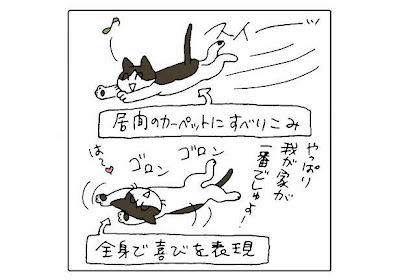 スイーッ
居間のカーペットにすべりこみ
やっぱり
我が家が
一番でしゅよ!
ゴロン
ゴロン
は〜♥
全身で喜びを表現